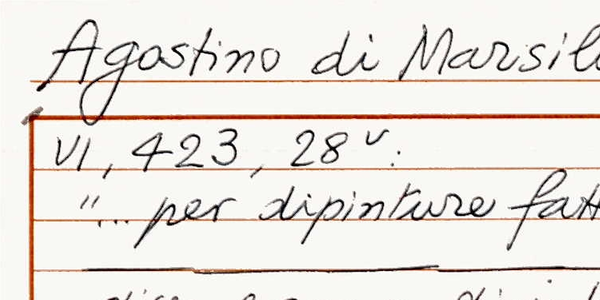 Agostino di Marsil
VI, 423, 28v:
"... per dipinture fatt